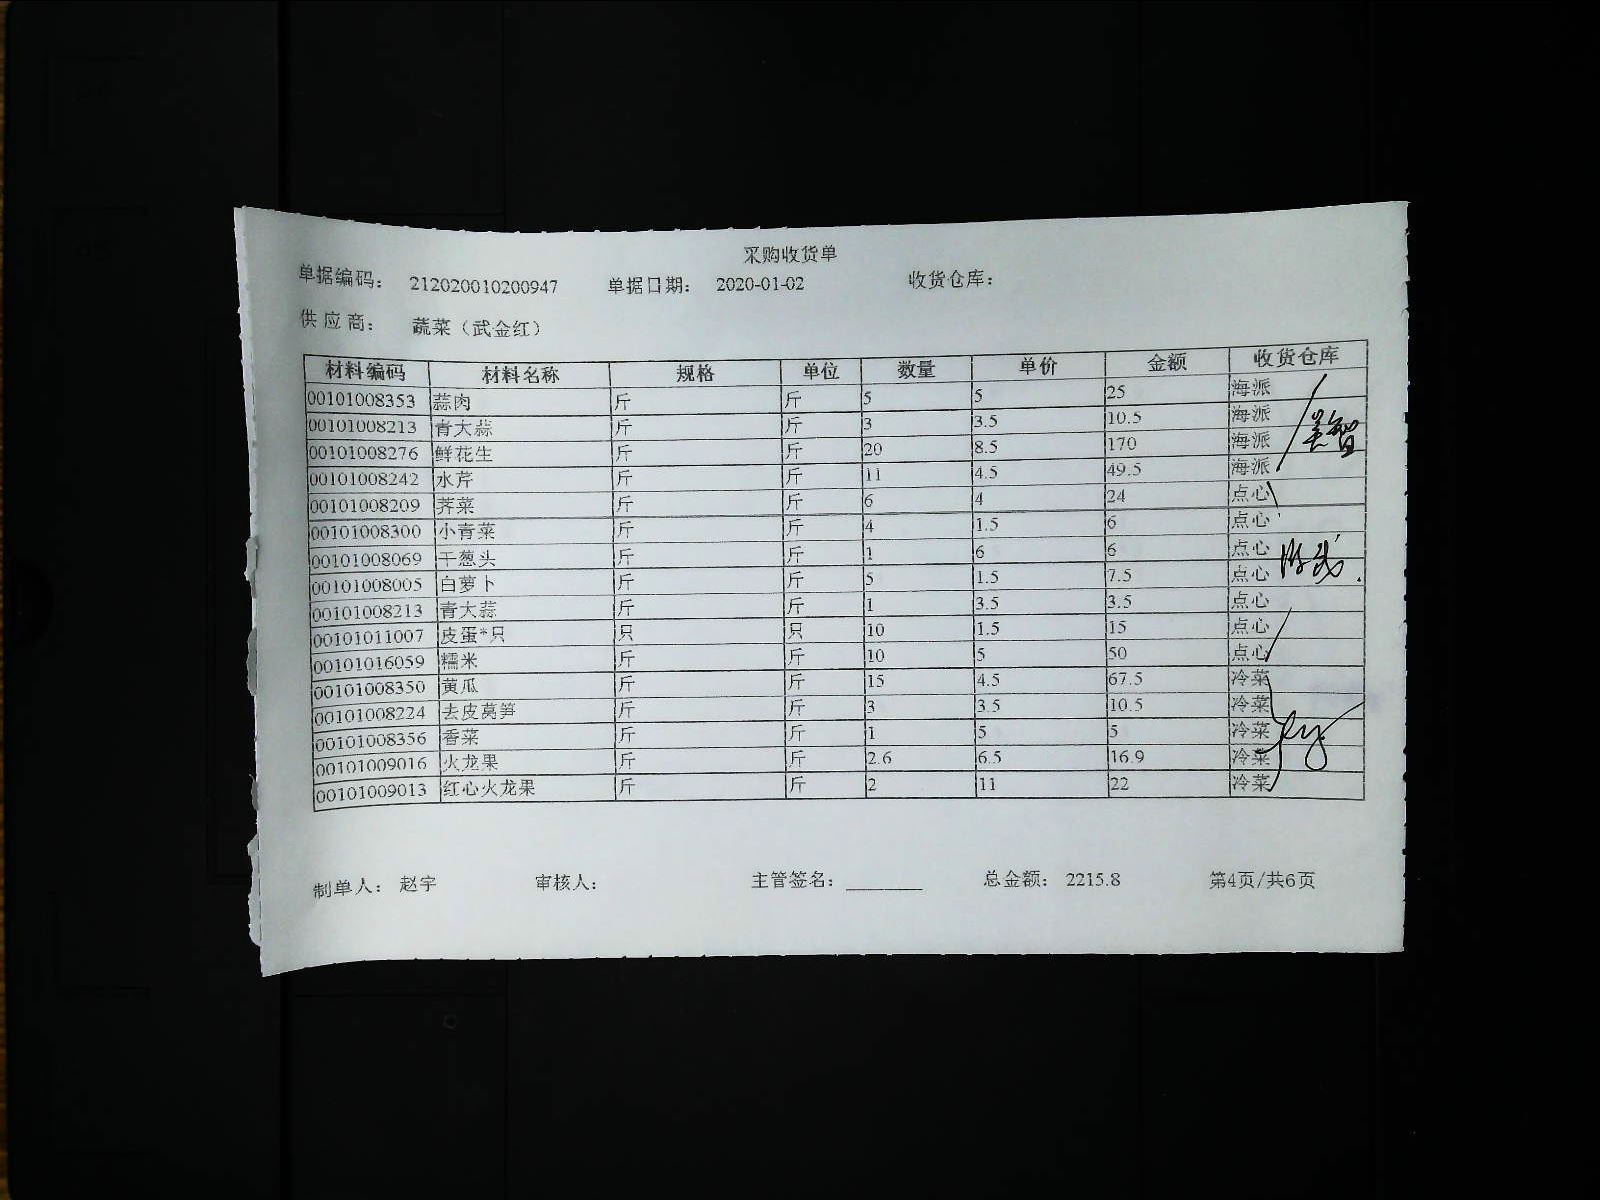 采购收货单
单据编码： 212020010200947 单据日期： 2020-01-02 收货仓库：
供应商： 蔬菜（武金红）
材料编码 材料名称 规格 单位 数量 单价 金额 收货仓库
00101008353 蒜肉 斤 斤 5 5 25 海派
00101008213 青大蒜 斤 斤 3 3.5 10.5 海派
00101008276 鲜花生 斤 斤 20 8.5 170 海派
00101008242 水芹 斤 斤 11 4.5 49.5 海派
00101008209 荠菜 斤 斤 6 4 24 点心
00101008300 小青菜 斤 斤 4 1.5 6 点心
00101008069 干葱头 斤 斤 1 6 6 点心
00101008005 白萝卜 斤 斤 5 1.5 7.5 点心
00101008213 青大蒜 斤 斤 1 3.5 3.5 点心
00101011007 皮蛋*只 只 只 10 1.5 15 点心
00101016059 糯米 斤 斤 10 5 50 点心
00101008350 黄瓜 斤 斤 15 4.5 67.5 冷菜
00101008224 去皮莴笋 斤 斤 3 3.5 10.5 冷菜
00101008356 香菜 斤 斤 1 5 5 冷菜
00101009016 火龙果 斤 斤 2.6 6.5 16.9 冷菜
00101009013 红心火龙果 斤 斤 2 11 22 冷菜
制单人： 赵宇 审核人： 主管签名：________ 总金额： 2215.8 第4页/共6页